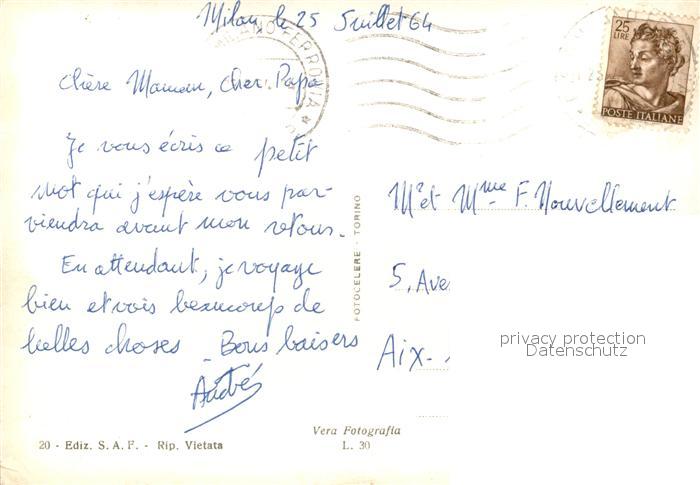 Milan le 25 Juillet 64
MILANO FERROVIA
25
LIRE
POSTE ITALIANE
Chère Maman, Cher Papa
Je vous écris ce petit
mot qui j'espère vous par-
viendra avant mon retour.
En attendant, je voyage
bien et vois beaucoup de
belles choses. Bons baisers
André
FOTOCELERE - TORINO
Mr et Mme F. Nouvellement
5, Ave
Aix-
privacy protection
Datenschutz
Vera Fotografia
20 - Ediz. S. A. F. - Rip. Vietata
L. 30